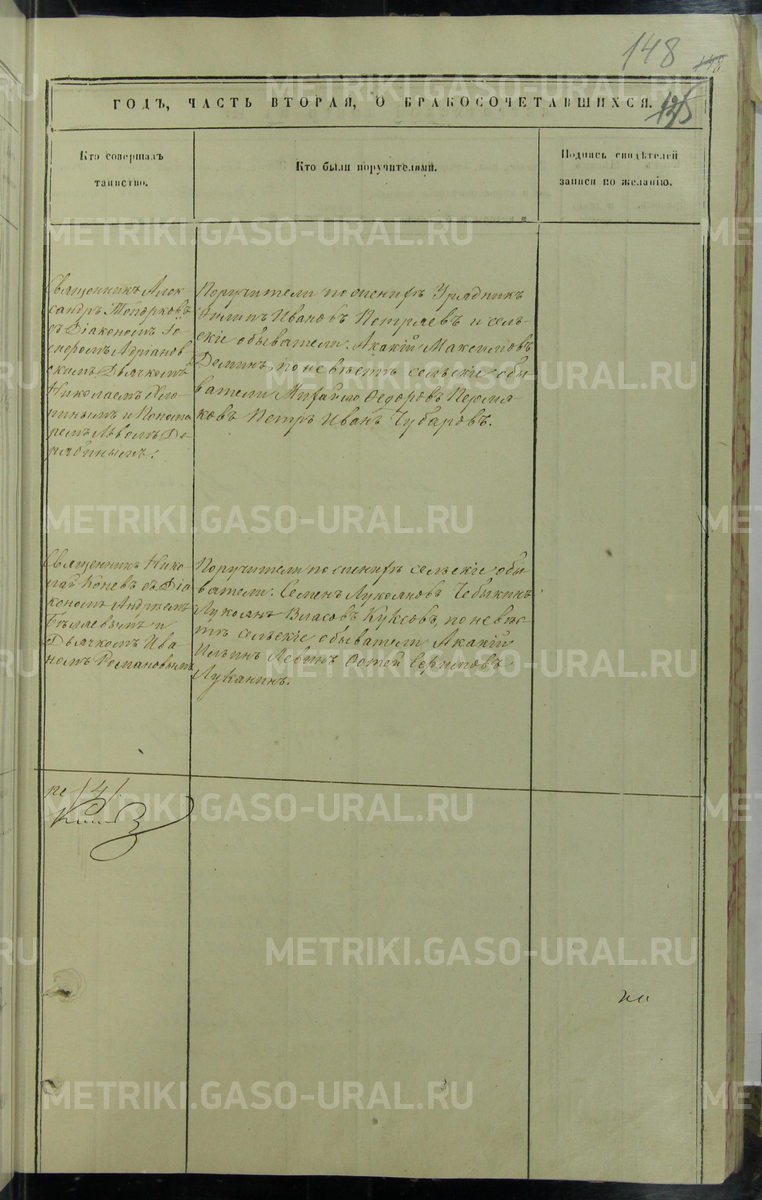 148
148
135
ГОДЪ, ЧАСТЬ ВТОРАЯ, О БРАКОСОЧЕТАВШИХСЯ.
Кто совершалъ
таинство.
Кто были поручителями.
Подпись свидѣтелей
записи по желанію.
Священникъ Алек
сандръ Топорковъ
съ Діакономъ
Адріанов
скимъ Дьячкомъ
Николаемъ
и Понома
ремъ Львомъ Де
рябинымъ.
Поручители по женихѣ Урядникъ
Филипъ Ивановъ Петряевъ и сель
скіе обыватели: Акакій Максимовъ
Деминъ, по невѣстѣ сельскіе обы
ватели Михайло Федоровъ Пермя
ковъ Петръ Иванъ Чубаровъ.
Священникъ Нико
лай Коневъ съ Діа
кономъ Андреемъ
Бѣляевымъ и
Дьячкомъ Ива
номъ Романовымъ
Поручители по женихѣ сельскіе обы
ватели: Семенъ Лукояновъ Чебыкинъ
Лукоянъ Власовъ Куксовъ, по невѣс
тѣ сельскіе обыватели Акакій
Ильинъ Левинъ Фотей
Луканинъ.
METRIKI.GASO-URAL.RU